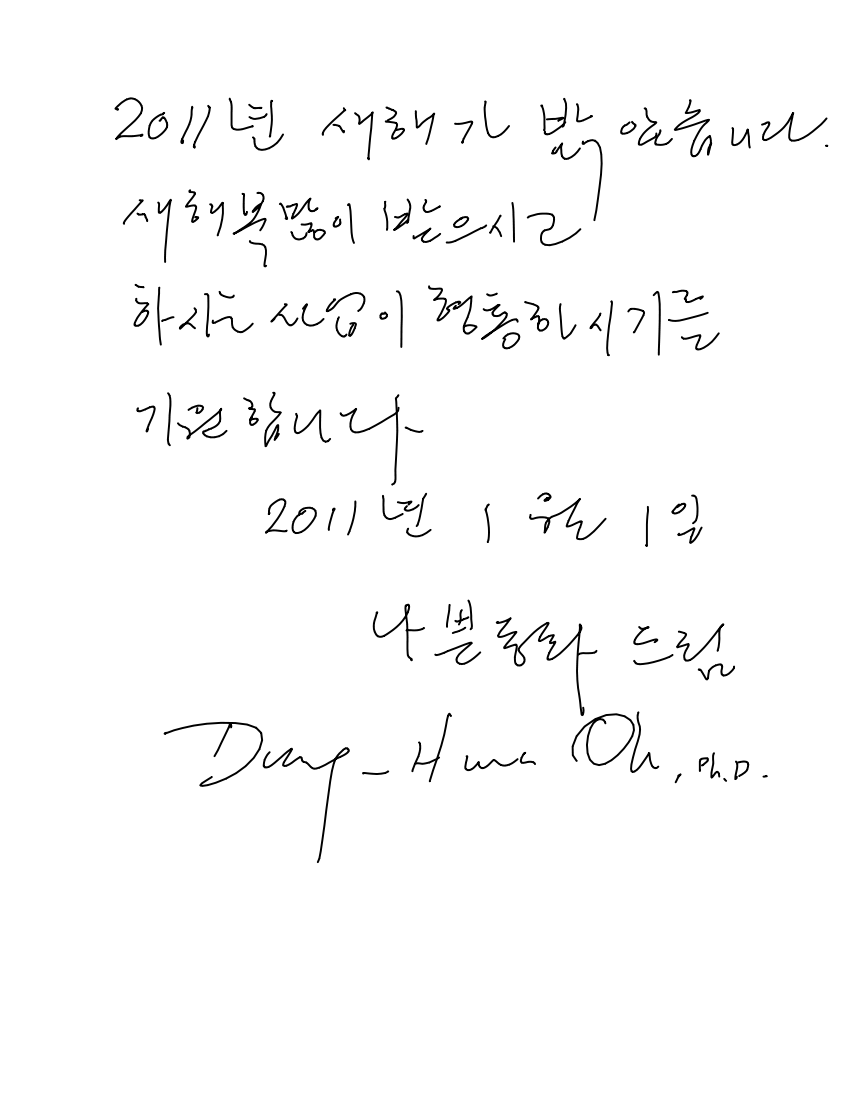 2011년 새해가 밝았습니다.
새해복많이 받으시고
하시는 사업이 형통하시기를
기원합니다
2011년 1월 1일
나쁜동화 드림
Dong-Hwa Oh, Ph.D.